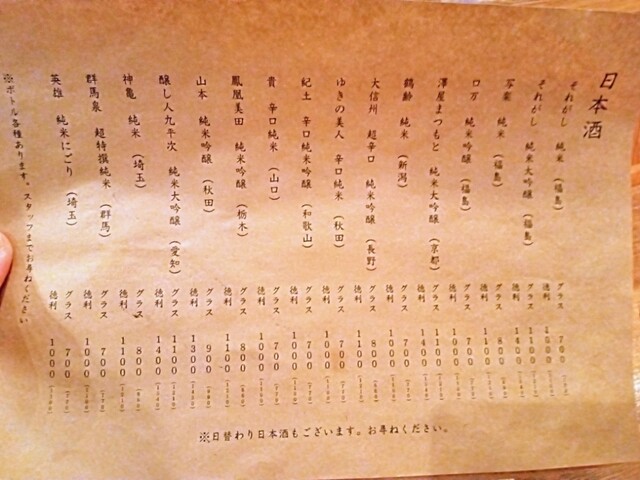 日本酒
それがし 純米(福島) グラス 700
徳利 1000
それがし 純米大吟醸(福島) グラス 1100
徳利 1400
写楽 純米(福島) グラス 800
徳利 1100
ロ万 純米吟醸(福島) グラス 700
徳利 1000
澤屋まつもと 純米大吟醸(京都) グラス 1100
徳利 1400
鶴齢 純米(新潟) グラス 700
徳利 1000
大信州 超辛口 純米吟醸(長野) グラス 800
徳利 1100
ゆきの美人 辛口純米(秋田) グラス 700
徳利 1000
紀土 辛口純米吟醸(和歌山) グラス 700
徳利 1000
貴 辛口純米(山口) グラス 700
徳利 1000
鳳凰美田 純米吟醸(栃木) グラス 800
徳利 1100
山本 純米吟醸(秋田) グラス 900
徳利 1300
醸し人九平次 純米大吟醸(愛知) グラス 1100
徳利 1400
神亀 純米(埼玉) グラス 800
徳利 1100
群馬泉 超特撰純米(群馬) グラス 700
徳利 1000
英雄 純米にごり(埼玉) グラス 700
徳利 1000
※ボトル各種あります。スタッフまでお尋ねください
※日替わり日本酒もございます。お尋ねください。